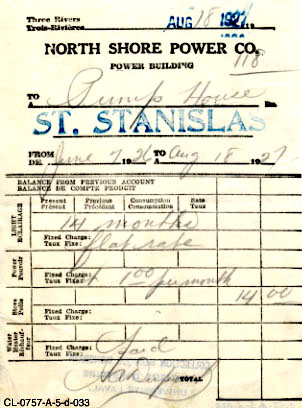 Three Rivers
Trois-Rivières
AUG 18 1927 19
NORTH SHORE POWER CO.
POWER BUILDING
118
TO
A
Pump House
ST. STANISLAS
FROM
DE June 7 1926 TO
A Aug 18 1927
BALANCE FROM PREVIOUS ACCOUNT
BALANCE DE COMPTE PRODUIT
Present
Présent
Previous
Précédent
Consumption
Consommation
Rate
Taux
LIGHT
ECLAIRAGE
14 months
Fixed Charge:
Taux Fixe:
flat rate
Power
Pouvoir
1.00 per month
Fixed Charge:
Taux Fixe:
Stove
Poêle
14 00
Water
Heater
Réchauf-
feur
Fixed Charge:
Taux Fixe:
Paid
TOTAL
CL-0757-A-5-d-033